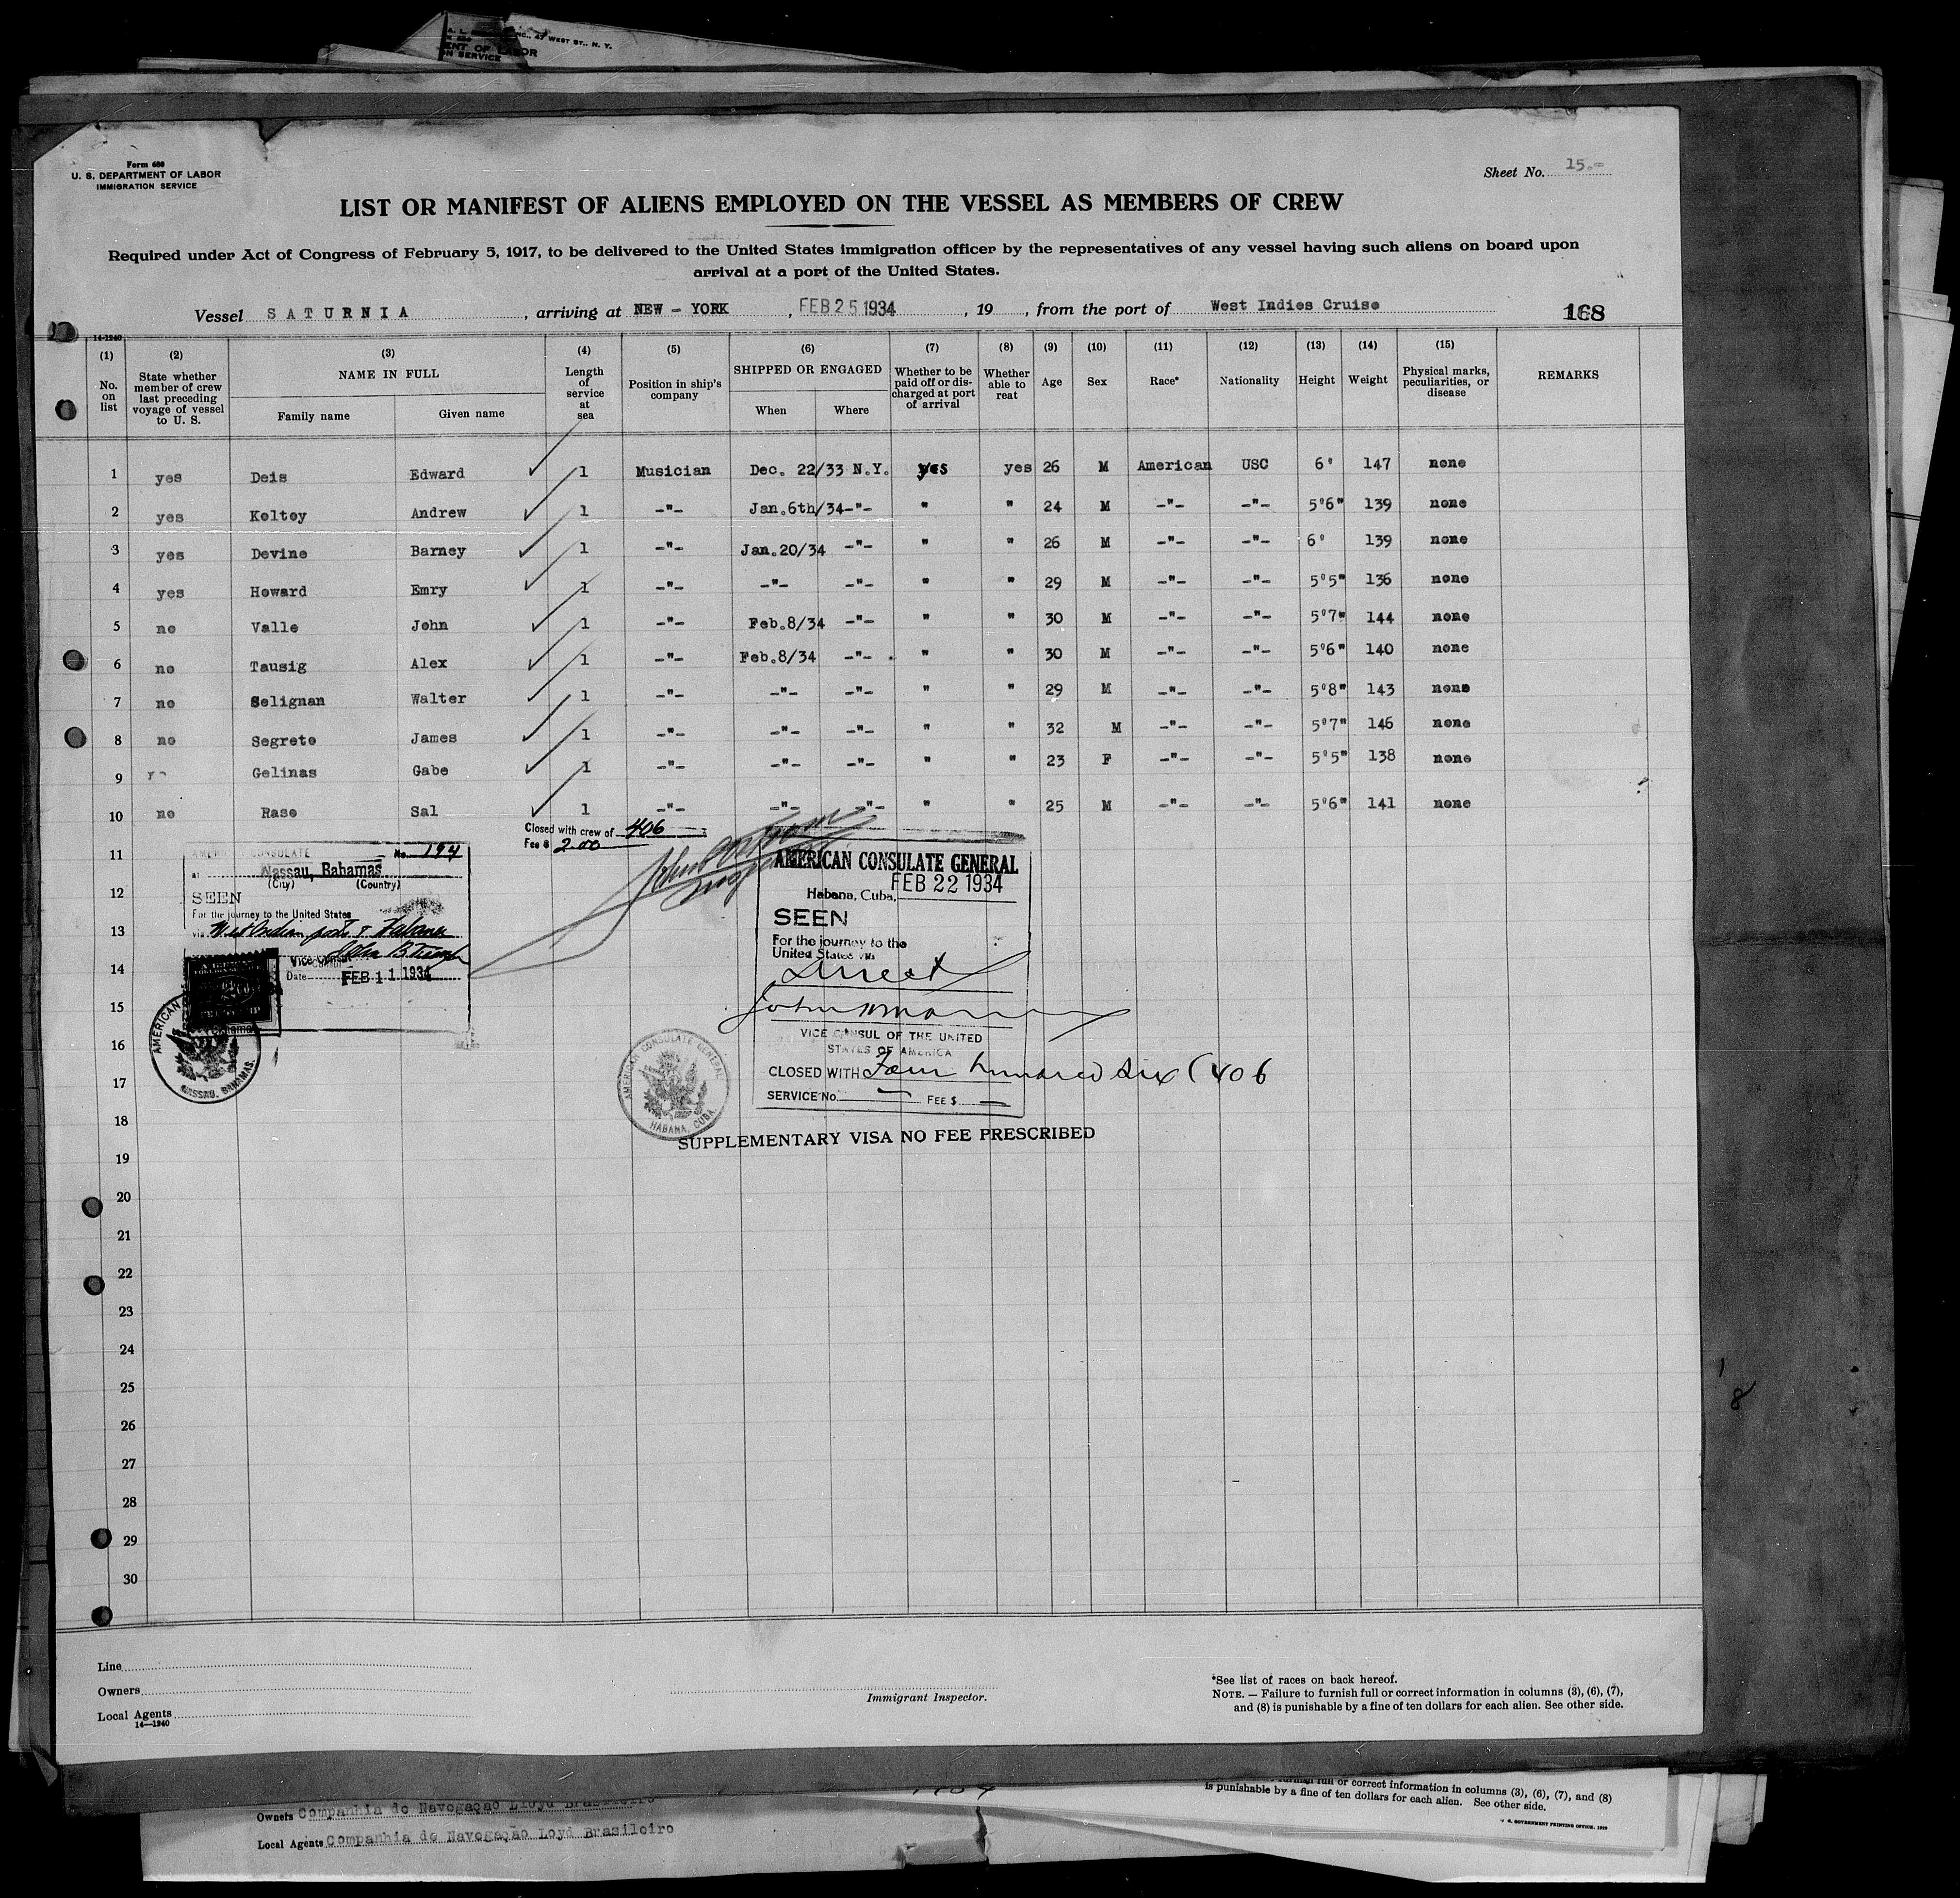 A. L. INC., 47 WEST ST., N. Y.
ENT OF LABOR
ON SERVICE
Form 680
U. S. DEPARTMENT OF LABOR
IMMIGRATION SERVICE
Sheet No. 15.-
LIST OR MANIFEST OF ALIENS EMPLOYED ON THE VESSEL AS MEMBERS OF CREW
Required under Act of Congress of February 5, 1917, to be delivered to the United States immigration officer by the representatives of any vessel having such aliens on board upon
arrival at a port of the United States.
Vessel SATURNIA, arriving at NEW - YORK, FEB 25 1934, 19 , from the port of West Indies Cruise 168
14-1240
(1) (2) (3) (4) (5) (6) (7) (8) (9) (10) (11) (12) (13) (14) (15)
No. on list State whether member of crew last preceding voyage of vessel to U. S. NAME IN FULL Family name Given name Length of service at sea Position in ship's company SHIPPED OR ENGAGED When Where Whether to be paid off or discharged at port of arrival Whether able to reat Age Sex Race* Nationality Height Weight Physical marks, peculiarities, or disease REMARKS
1 yes Deis Edward 1 Musician Dec. 22/33 N.Y. yes yes 26 M American USC 6' 147 none
2 yes Keltey Andrew 1 -"- Jan.6th/34 -"- " " 24 M -"- -"- 5'6" 139 none
3 yes Devine Barney 1 -"- Jan.20/34 -"- " " 26 M -"- -"- 6' 139 none
4 yes Howard Emry 1 -"- -"- -"- " " 29 M -"- -"- 5'5" 136 none
5 no Valle John 1 -"- Feb.8/34 -"- " " 30 M -"- -"- 5'7" 144 none
6 no Tausig Alex 1 -"- Feb.8/34 -"- " " 30 M -"- -"- 5'6" 140 none
7 no Selignan Walter 1 -"- -"- -"- " " 29 M -"- -"- 5'8" 143 none
8 no Segrete James 1 -"- -"- -"- " " 32 M -"- -"- 5'7" 146 none
9 Gelinas Gabe 1 -"- -"- -"- " " 23 F -"- -"- 5'5" 138 none
10 no Rase Sal 1 -"- -"- -"- " " 25 M -"- -"- 5'6" 141 none
Closed with crew of 406
Fee $ 2.00
11
12
13
14
15
16
17
18
19
20
21
22
23
24
25
26
27
28
29
30
AMERICAN CONSULATE No. 194
at Nassau, Bahamas
(City) (Country)
SEEN
For the journey to the United States
via West Indian ports & Habana
Vice Consul
Date FEB 11 1934
AMERICAN
NASSAU, BAHAMAS.
AMERICAN CONSULATE GENERAL
FEB 22 1934
Habana, Cuba,
SEEN
For the journey to the
United States via
direct
VICE CONSUL OF THE UNITED
STATES OF AMERICA
CLOSED WITH Four hundred six (406
SERVICE No. — FEE $ —
AMERICAN CONSULATE GENERAL
HABANA, CUBA
SUPPLEMENTARY VISA NO FEE PRESCRIBED
8
Line
Owners
Local Agents
14—1240
Immigrant Inspector.
*See list of races on back hereof.
NOTE. — Failure to furnish full or correct information in columns (3), (6), (7),
and (8) is punishable by a fine of ten dollars for each alien. See other side.
Owners Companhia de Navegação Lloyd Brasileiro
Local Agents Companhia de Navegação Loyd Brasileiro
full or correct information in columns (3), (6), (7), and (8)
is punishable by a fine of ten dollars for each alien. See other side.
GOVERNMENT PRINTING OFFICE. 1929